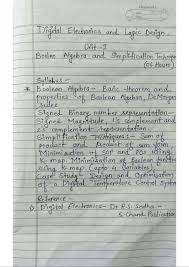 Digital Electronics and Logic Design.
Unit - I
Boolean Algebra and Simplification Technique
(06 Hours)
Syllabus -
* Boolean Algebra - Basic theorem and
properties of Boolean Algebra, DeMorgan's
rules
Signed Binary number representation -
Signed Magnitude, 1's complement and
2's complement representation.
Simplification Techniques - Sum of
product and Product of sum form
Minimization of SOP and POS using
K-map, Minimization of Boolean function
using K map (upto 4 Variables).
Case Study: Design and Optimization
of a Digital Temperature Control System
Reference -
Digital Electronics - Dr. R. S. Sedha -
S. Chand Publication